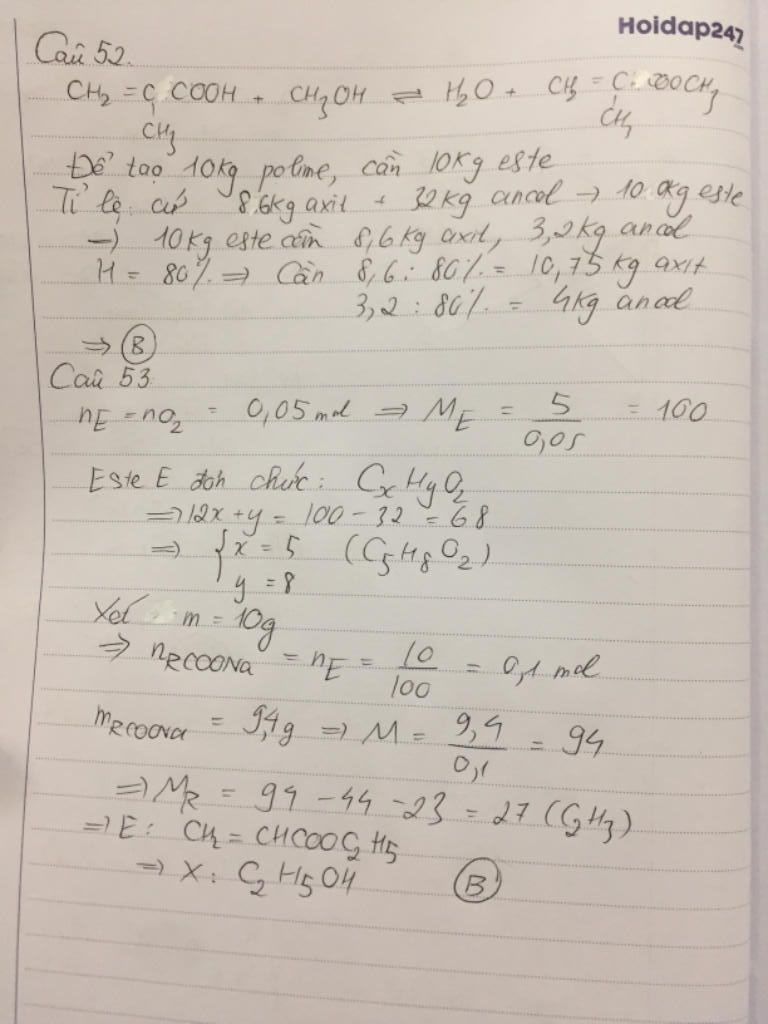 Hoidap247
Câu 52.
CH2 = C COOH + CH3OH ⇌ H2O + CH2 = C COOCH3
CH3 CH3
Để tạo 10Kg polime, cần 10Kg este
Tỉ lệ: cứ 8,6kg axit + 32kg ancol → 10.0kg este
→ 10kg este cần 8,6kg axit, 3,2kg ancol
H = 80% ⇒ Cần 8,6 : 80% = 10,75 kg axit
3,2 : 80% = 4kg ancol
⇒ B
Câu 53
nE = nO2 = 0,05 mol ⇒ ME = 5/0,05 = 100
Este E đơn chức: CxHyO2
⇒ 12x + y = 100 - 32 = 68
⇒ { x = 5 (C5H8O2)
y = 8
Xét m = 10g
⇒ nRCOONa = nE = 10/100 = 0,1 mol
mRCOONa = 9,4g ⇒ M = 9,4/0,1 = 94
⇒ MR = 94 - 44 - 23 = 27 (C2H3)
⇒ E: CH2 = CHCOOC2H5
⇒ X: C2H5OH B